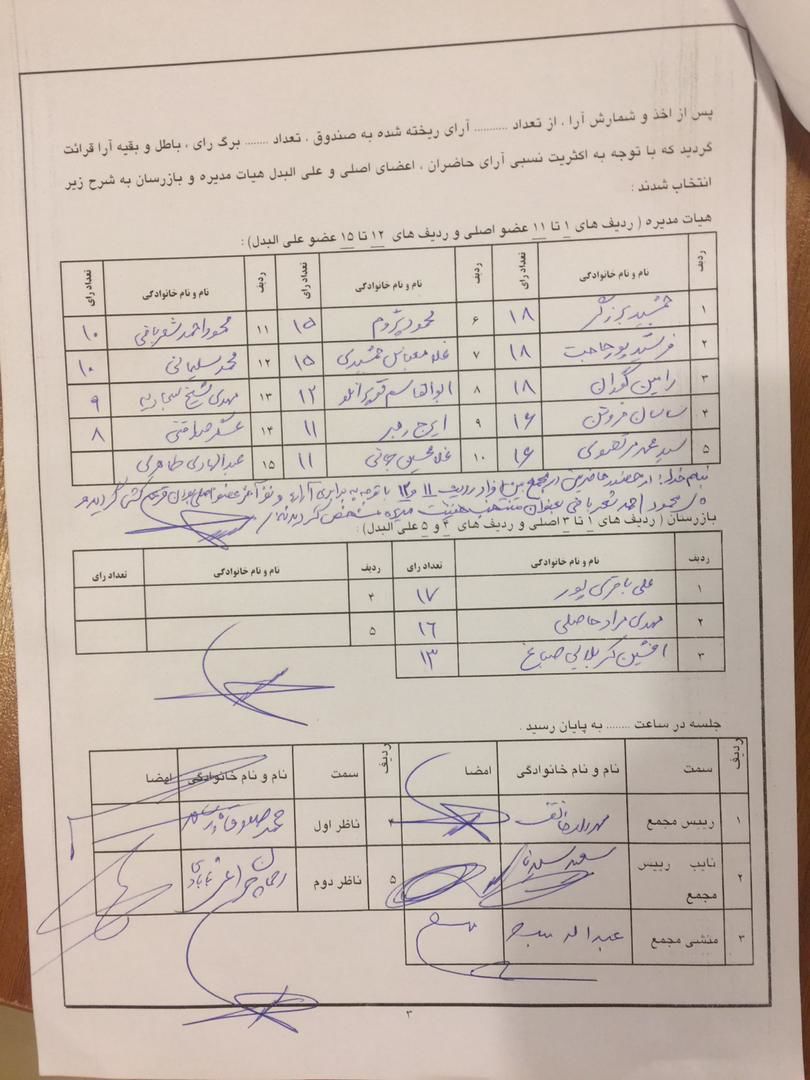 پس از اخذ و شمارش آرا ، از تعداد ........... آرای ریخته شده به صندوق ، تعداد ........ برگ رای ، باطل و بقیه آرا قرائت
گردید که با توجه به اکثریت نسبی آرای حاضران ، اعضای اصلی و علی البدل هیات مدیره و بازرسان به شرح زیر
انتخاب شدند :
هیات مدیره ( ردیف های ۱ تا ۱۱ عضو اصلی و ردیف های ۱۲ تا ۱۵ عضو علی البدل) :
ردیف نام و نام خانوادگی تعداد رای ردیف نام و نام خانوادگی تعداد رای ردیف نام و نام خانوادگی تعداد رای
۱ جمشید برزگر ۱۸ ۶ محمود ۱۵ ۱۱ محمود احمد شعربافی ۱۰
۲ فرشید پورحاجت ۱۸ ۷ غلامعباس جمشیدی ۱۵ ۱۲ محمد سلیمانی ۱۰
۳ رامین گوران ۱۸ ۸ ابوالقاسم ۱۲ ۱۳ مهدی شیخ سجادیه ۹
۴ ساسان فروتن ۱۶ ۹ ایرج رهبر ۱۱ ۱۴ عسگر صداقتی ۸
۵ سید محمد مرتضوی ۱۶ ۱۰ غلامحسین ۱۱ ۱۵ عبدالهادی طاهری
بنام خدا: در حضور حاضرین در مجمع بین افراد ردیف ۱۱ و ۱۲ با توجه به برابری آراء و نفر آخر عضو اصلی بودن قرعه کشی گردید و
محمود احمد شعربافی بعنوان منتخب هیئت مدیره مشخص گردیدند
بازرسان ( ردیف های ۱ تا ۳ اصلی و ردیف های ۴ و ۵ علی البدل) :
ردیف نام و نام خانوادگی تعداد رای ردیف نام و نام خانوادگی تعداد رای
۱ علی باقری پور ۱۷ ۴
۲ مهدی مراد حاصلی ۱۶ ۵
۳ افشین کربلایی صباغ ۱۳
جلسه در ساعت ........ به پایان رسید .
ردیف سمت نام و نام خانوادگی امضا ردیف سمت نام و نام خانوادگی امضا
۱ رییس مجمع ۴ ناظر اول
۲ نایب رییس مجمع ۵ ناظر دوم
۳ منشی مجمع
۳